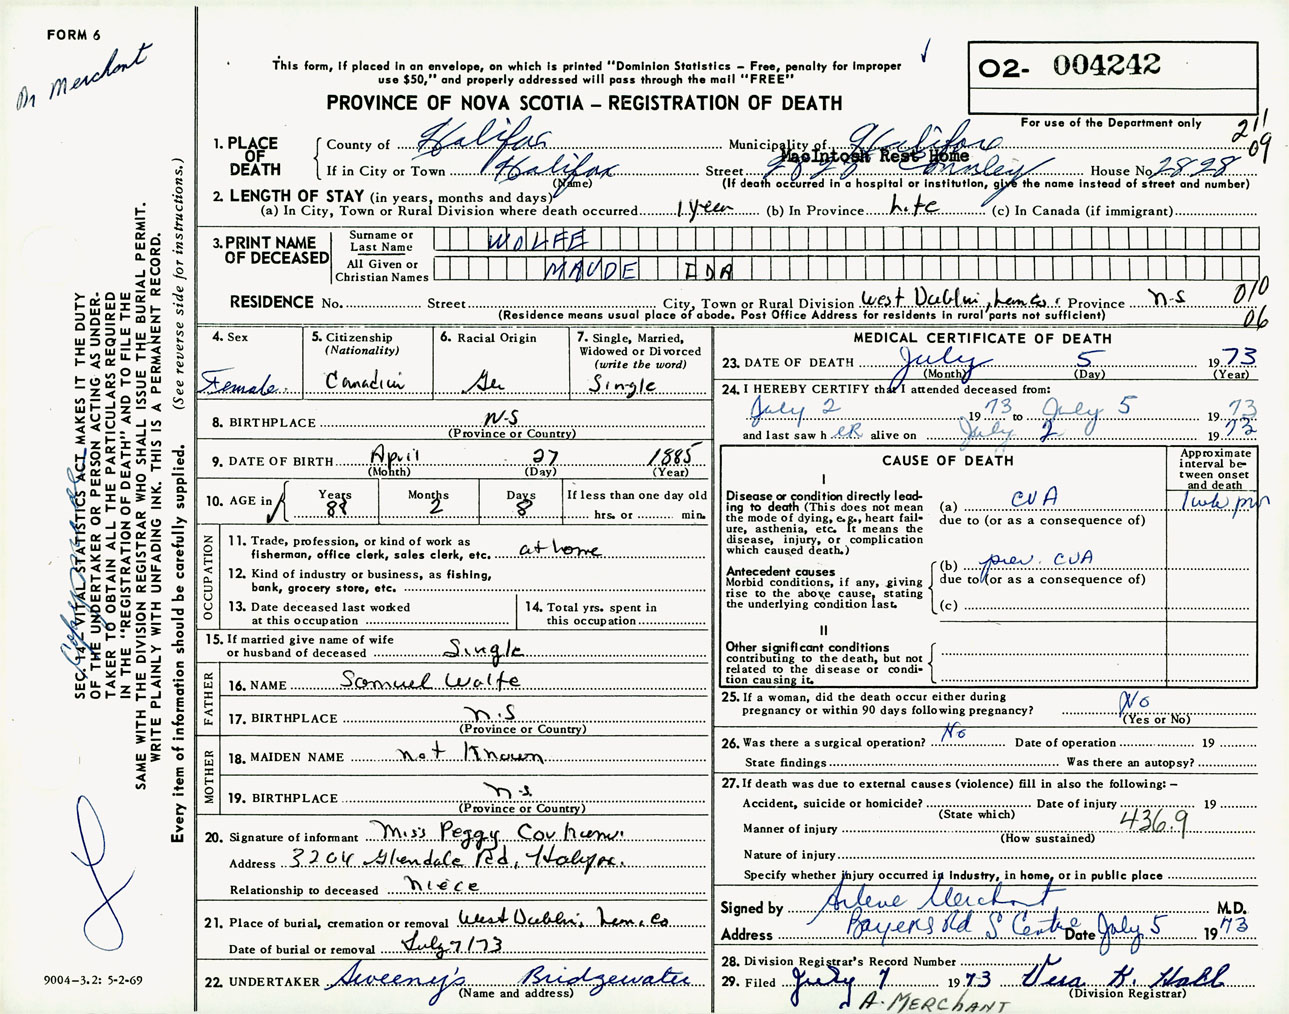 FORM 6
Dr Merchant
This form, if placed in an envelope, on which is printed "Dominion Statistics – Free, penalty for improper
use $50," and properly addressed will pass through the mail "FREE"
PROVINCE OF NOVA SCOTIA – REGISTRATION OF DEATH
O2- 004242
For use of the Department only
211
09
1. PLACE OF DEATH
County of Halifax Municipality of Halifax
MacIntosh Rest Home
If in City or Town Halifax Street 2828 Connley House No 2828
(Name) (If death occurred in a hospital or institution, give the name instead of street and number)
2. LENGTH OF STAY (in years, months and days)
(a) In City, Town or Rural Division where death occurred 1 year (b) In Province Life (c) In Canada (if immigrant)
3. PRINT NAME OF DECEASED
Surname or Last Name WOLFE
All Given or Christian Names MAUDE IDA
RESIDENCE No. Street City, Town or Rural Division West Dublin, Lun Co. Province N-S
010
06
(Residence means usual place of abode. Post Office Address for residents in rural parts not sufficient)
4. Sex Female
5. Citizenship (Nationality) Canadian
6. Racial Origin Ger
7. Single, Married, Widowed or Divorced (write the word) Single
8. BIRTHPLACE N-S
(Province or Country)
9. DATE OF BIRTH April 27 1885
(Month) (Day) (Year)
10. AGE in Years 88 Months 2 Days 8 If less than one day old
hrs. or min.
OCCUPATION
11. Trade, profession, or kind of work as
fisherman, office clerk, sales clerk, etc. at home
12. Kind of industry or business, as fishing,
bank, grocery store, etc.
13. Date deceased last worked
at this occupation
14. Total yrs. spent in
this occupation
15. If married give name of wife
or husband of deceased Single
FATHER
16. NAME Samuel Wolfe
17. BIRTHPLACE N.S
(Province or Country)
MOTHER
18. MAIDEN NAME not Known
19. BIRTHPLACE N-S
(Province or Country)
20. Signature of informant Miss Peggy
Address 3204 Glendale Rd, Halifax.
Relationship to deceased niece
21. Place of burial, cremation or removal West Dublin, Lun, Co
Date of burial or removal July 7/73
22. UNDERTAKER Sweeney's Bridgewater
(Name and address)
MEDICAL CERTIFICATE OF DEATH
23. DATE OF DEATH July 5 1973
(Month) (Day) (Year)
24. I HEREBY CERTIFY that I attended deceased from:
July 2 1973 to July 5 1973
and last saw h er alive on July 2 1973
CAUSE OF DEATH
Approximate interval between onset and death
I
Disease or condition directly lead-
ing to death (This does not mean
the mode of dying, e.g., heart fail-
ure, asthenia, etc. It means the
disease, injury, or complication
which caused death.)
(a) CVA 1 wk prior
due to (or as a consequence of)
Antecedent causes
Morbid conditions, if any, giving
rise to the above cause, stating
the underlying condition last.
(b) prev. CVA
due to (or as a consequence of)
(c)
II
Other significant conditions
contributing to the death, but not
related to the disease or condi-
tion causing it.
25. If a woman, did the death occur either during
pregnancy or within 90 days following pregnancy? No
(Yes or No)
26. Was there a surgical operation? No Date of operation 19
State findings Was there an autopsy?
27. If death was due to external causes (violence) fill in also the following: –
Accident, suicide or homicide? Date of injury 19
(State which)
Manner of injury 436.9
(How sustained)
Nature of injury
Specify whether injury occurred in industry, in home, or in public place
Signed by Arlene Merchant M.D.
Address Bayers Rd S Centre Date July 5 1973
28. Division Registrar's Record Number
29. Filed July 7 1973 Vera K. Hall
(Division Registrar)
A. MERCHANT
SEC. 14, VITAL STATISTICS ACT MAKES IT THE DUTY
OF THE UNDERTAKER OR PERSON ACTING AS UNDER-
TAKER TO OBTAIN ALL THE PARTICULARS REQUIRED
IN THE "REGISTRATION OF DEATH" AND TO FILE THE
SAME WITH THE DIVISION REGISTRAR WHO SHALL ISSUE THE BURIAL PERMIT.
WRITE PLAINLY WITH UNFADING INK. THIS IS A PERMANENT RECORD.
Every item of information should be carefully supplied. (See reverse side for instructions.)
9004–3.2: 5-2-69